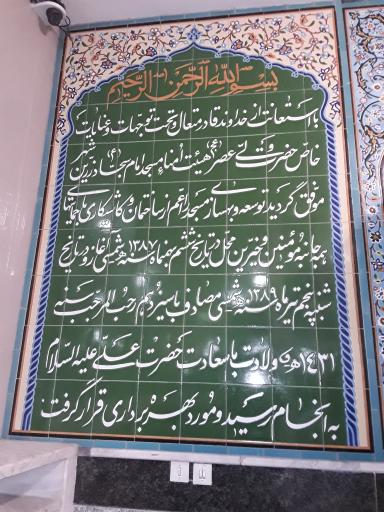 بسم الله الرحمن الرحیم
با استعانت از خداوند قادر متعال و تحت توجهات و عنایات
خاص حضرت ولی عصر (عج) هیئت امنای مسجد امام سجاد (ع) زرین شهر
موفق گردید توسعه و بهسازی مسجد را اعم از ساختمان و کاشیکاری با حمایتهای
همه جانبه مؤمنین و خیرین محل در تاریخ ششم مهرماه سنه ۱۳۸۷ شمسی آغاز و در تاریخ
شنبه پنجم تیرماه ۱۳۸۹ سنه شمسی مصادف با سیزدهم رجب المرجب سنه
۱۴۳۱ ه‍ ق ولادت باسعادت حضرت علی علیه السلام
به انجام رسید و مورد بهره برداری قرار گرفت